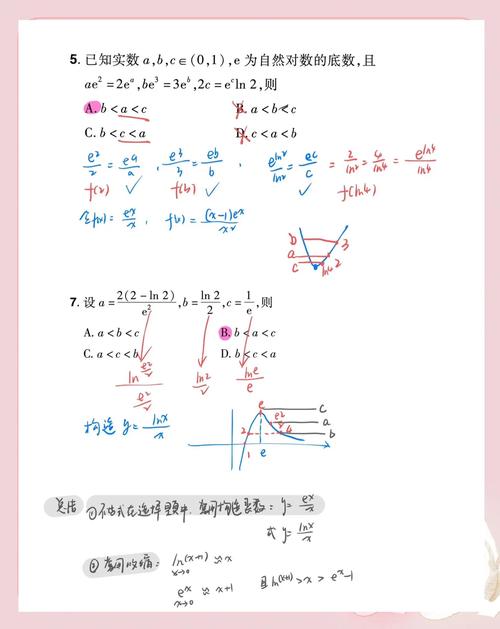 5. 已知实数 a,b,c∈(0,1), e 为自然对数的底数,且
ae²=2eᵃ,be³=3eᵇ,2c=eᶜln 2,则
A. b<a<c B. a<b<c
C. b<c<a D. c<a<b
e²/2 = eᵃ/a , e³/3 = eᵇ/b e^ln2/ln2 = eᶜ/c = 2/ln2 = 4/ln4 = e^ln4/ln4
f(2) ✓ f(3) ✓ ✓ f(ln4)
令f(x)= eˣ/x , f'(x)= (x-1)eˣ/x²
b 3
a
c ln4 2
7. 设 a=2(2-ln 2)/e²,b=ln 2/2,c=1/e,则
A. a<b<c B. b<a<c
C. a<c<b D. b<c<a
ln e²/2 / e²/2 ln2/2 lne/e
构造 y= lnx/x
e c
e²/2 a
2 4 b
1 e
总结 ①不等式在选择题中,常用构造函数: y= eˣ/x
或 y= lnx/x
②常用放缩: ln(x+1) ≈ x
x→0
eˣ ≈ x+1 且ln(x+1)>x>eˣ-1
x→0